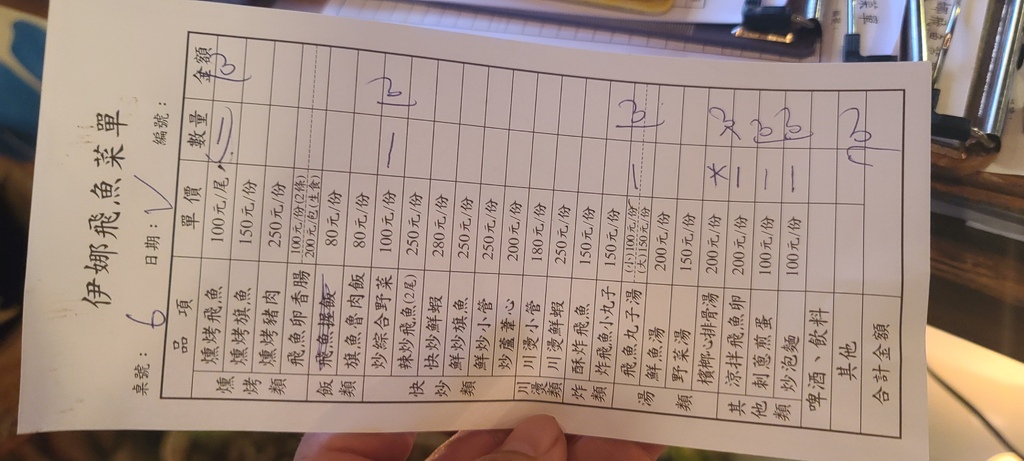 伊娜飛魚菜單
桌號: 6 日期: 編號:
品項 單價 數量 金額
燻烤類
燻烤飛魚 100元/尾 二
燻烤旗魚 150元/份
燻烤豬肉 250元/份
飛魚卵香腸 100元/份(2條) 200元/包(生食)
飯類
飛魚握飯 80元/份
旗魚魯肉飯 80元/份
快炒類
炒綜合野菜 100元/份 一
辣炒飛魚(2尾) 250元/份
快炒鮮蝦 280元/份
鮮炒旗魚 250元/份
鮮炒小管 250元/份
炒蘆葦心 200元/份
川燙類
川燙小管 180元/份
川燙鮮蝦 250元/份
炸類
酥炸飛魚 150元/份
炸飛魚小丸子 150元/份
湯類
飛魚丸子湯 (小)100元/份 (大)150元/份 一
鮮魚湯 200元/份
野菜湯 150元/份
檳榔心排骨湯 200元/份
其他類
涼拌飛魚卵 200元/份 一
刺蔥煎蛋 100元/份 一
炒泡麵 100元/份 一
啤酒、飲料
其他
合計金額